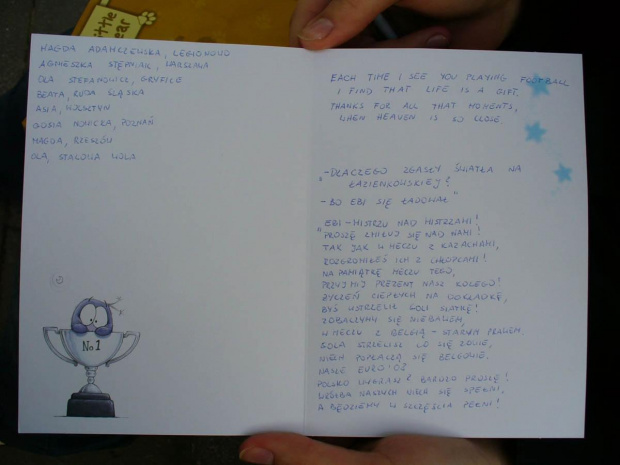 little
Bear
MAGDA ADAMCZEWSKA, LEGIONOWO
AGNIESZKA STĘPNIAK, WARSZAWA
OLA STEFANOWICZ, GRYFICE
BEATA, RUDA ŚLĄSKA
ASIA, WOLSZTYN
GOSIA NOWICKA, POZNAŃ
MAGDA, RZESZÓW
OLA, STALOWA WOLA
No.1
EACH TIME I SEE YOU PLAYING FOOTBALL
I FIND THAT LIFE IS A GIFT.
THANKS FOR ALL THAT MOMENTS,
WHEN HEAVEN IS SO CLOSE
"-DLACZEGO ZGASŁY ŚWIATŁA NA
ŁAZIENKOWSKIEJ?
-BO EBI SIĘ ŁADOWAŁ"
EBI-MISTRZU NAD MISTRZAMI!
PROSZĘ ZLITUJ SIĘ NAD NAMI!
TAK JAK W MECZU Z KAZACHAMI,
ROZGROMIŁEŚ ICH Z CHŁOPCAMI!
NA PAMIĄTKĘ MECZU TEGO,
PRZYJMIJ PREZENT NASZ KOLEGO!
ŻYCZEŃ CIEPŁYCH NA DOKŁADKĘ,
BYŚ USTRZELIŁ GOLI SIATKĘ!
ZOBACZYMY SIĘ NIEBAWEM,
W MECZU Z BELGIĄ - STARYM PRAWEM
GOLA STRZELISZ CO SIĘ ZOWIE,
NIECH POPŁACZĄ SIĘ BELGOWIE.
NASZE EURO!
POLSKO WYGRAJ BARDZO PROSZĘ!
NASZYCH SIĘ SPEŁNI,
A BĘDZIEMY W SZCZĘŚCIA PEŁNI!